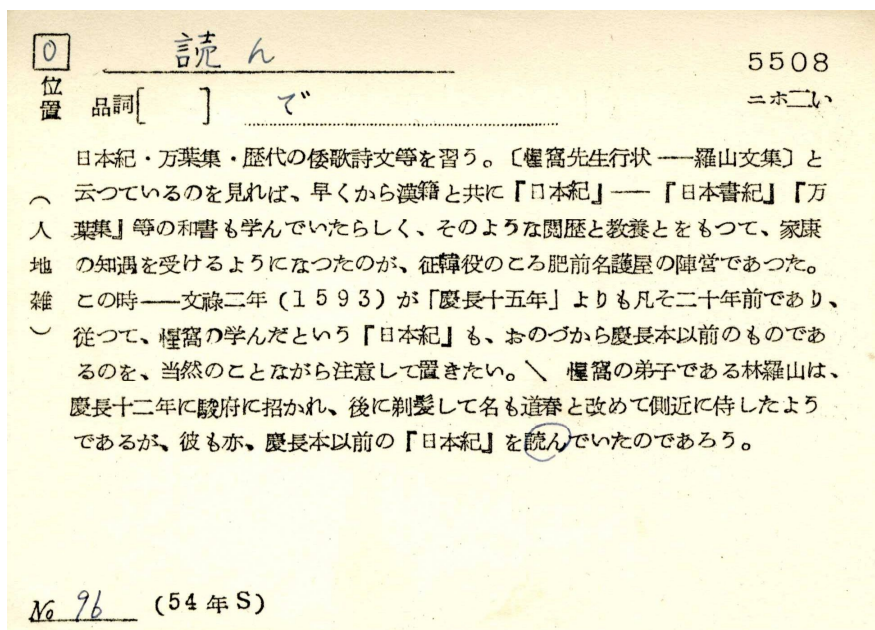 0
位置
読ん
5508
品詞[ ] で
ニホ二い
(人地雑)
日本紀・万葉集・歴代の倭歌詩文等を習う。〔惺窩先生行状――羅山文集〕と
云つているのを見れば、早くから漢籍と共に『日本紀』――『日本書紀』『万
葉集』等の和書も学んでいたらしく、そのような閲歴と教養とをもつて、家康
の知遇を受けるようになつたのが、征韓役のころ肥前名護屋の陣営であつた。
この時――文祿二年(1593)が「慶長十五年」よりも凡そ二十年前であり、
従つて、惺窩の学んだという『日本紀』も、おのづから慶長本以前のものであ
るのを、当然のことながら注意して置きたい。\ 惺窩の弟子である林羅山は、
慶長十二年に駿府に招かれ、後に剃髪して名も道春と改めて側近に侍したよう
であるが、彼も亦、慶長本以前の『日本紀』を読んでいたのであろう。
No 96 (54年S)